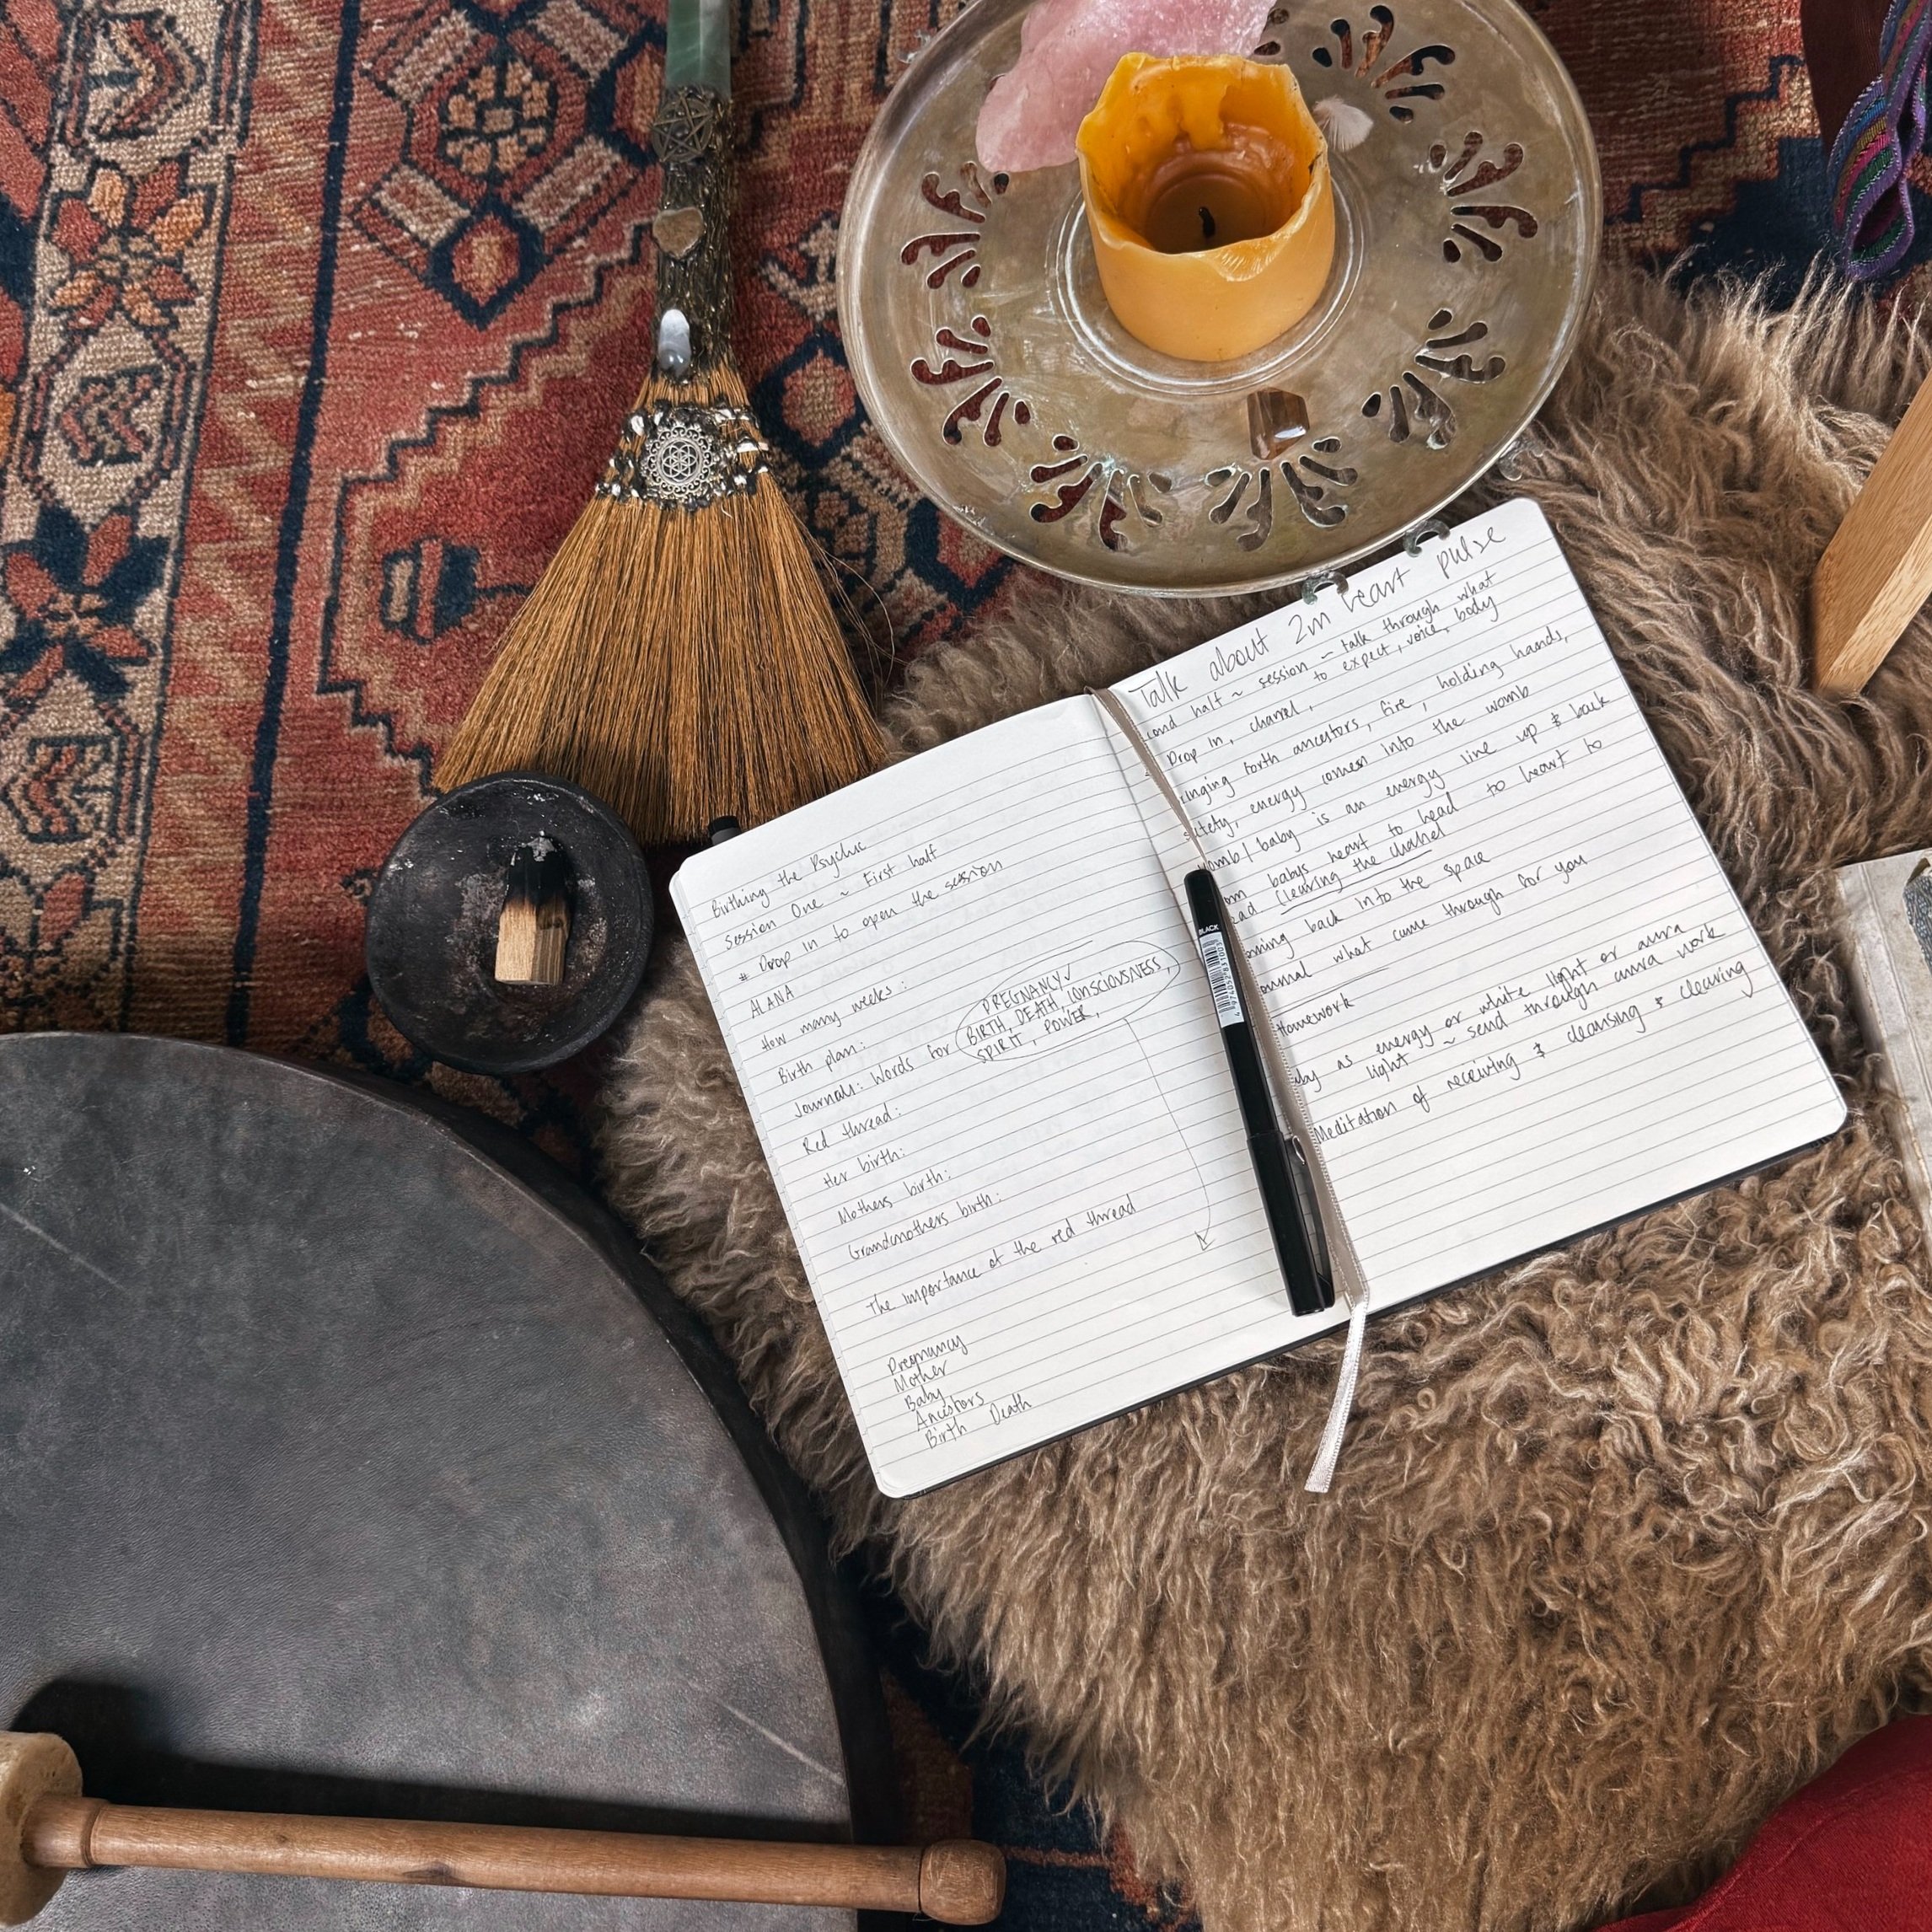 Birthing the Psychic
Session One ~ First half
* Drop in to open the session
ALANA
How many weeks:
Birth plan:
Journals: Words for
PREGNANCY ✓
BIRTH, DEATH, CONSCIOUSNESS,
SPIRIT, POWER,
Red thread:
Her birth:
Mothers birth:
Grandmothers birth:
The importance of the red thread
Pregnancy
Mother
Baby
Ancestors
Birth Death
Talk about 2m heart pulse
half ~ session ~ talk through what
Drop in, channel, to expect, voice, body
forth ancestors, fire, holding hands,
energy comes into the womb
baby is an energy line up & back
babys heart to head to heart to
clearing the channel
back into the space
what came through for you
Homework
as energy or white light or aura
light ~ send through aura work
Meditation of receiving & cleansing & clearing
BLACK